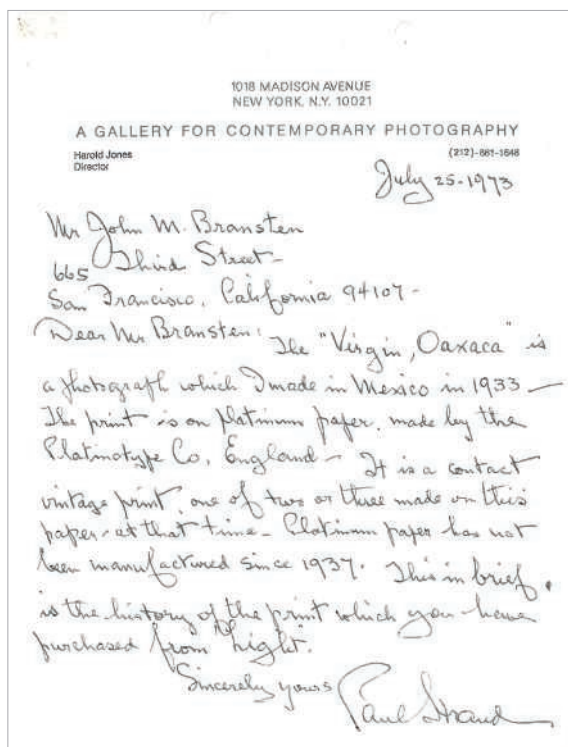 1018 MADISON AVENUE
NEW YORK, N.Y. 10021
A GALLERY FOR CONTEMPORARY PHOTOGRAPHY
Harold Jones
Director
(212)-661-1646
July 25-1973
Mr John M. Bransten
665 Third Street-
San Francisco, California 94107-
Dear Mr Bransten: The "Virgin, Oaxaca" is
a photograph which I made in Mexico in 1933 —
The print is on platinum paper, made by the
Platinotype Co, England - It is a contact
vintage print, one of two or three made on this
paper - at that time - Platinum paper has not
been manufactured since 1937. This in brief,
is the history of the print which you have
purchased from "Light".
Sincerely yours
Paul Strand